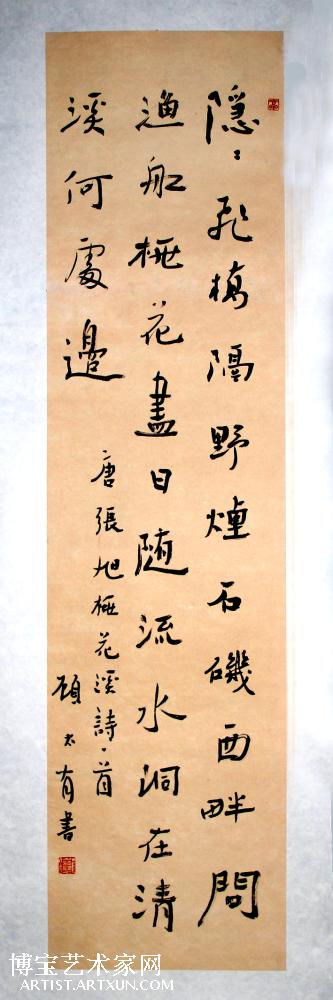 隱〻飛橋隔野煙石磯西畔問
漁船桃花盡日隨流水洞在清
溪何處邊
唐張旭桃花溪詩一首
顧太有書
博宝艺术家网
ARTIST.ARTXUN.COM